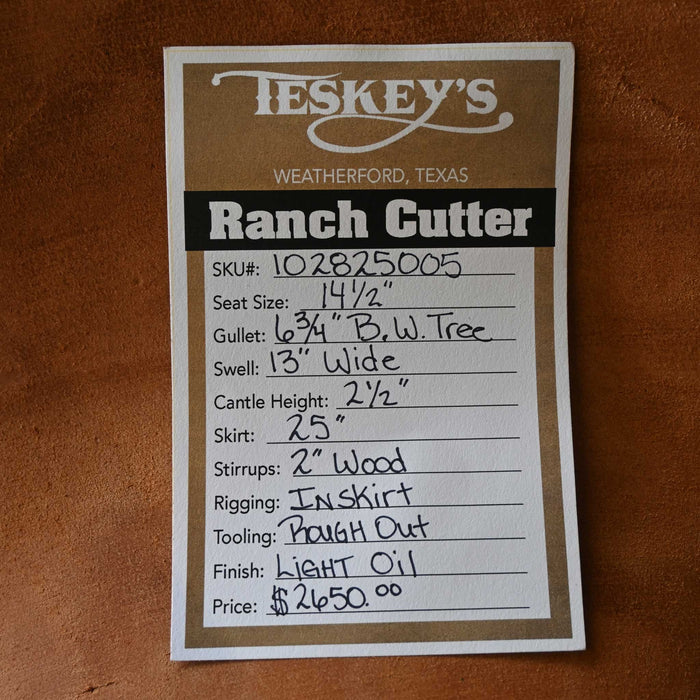 TESKEY'S
WEATHERFORD, TEXAS
Ranch Cutter
SKU#: 102825005
Seat Size: 14 1/2"
Gullet: 6 3/4" B.W. Tree
Swell: 13" Wide
Cantle Height: 2 1/2"
Skirt: 25"
Stirrups: 2" Wood
Rigging: INSKIRT
Tooling: ROUGH OUT
Finish: LIGHT Oil
Price: $2650.00